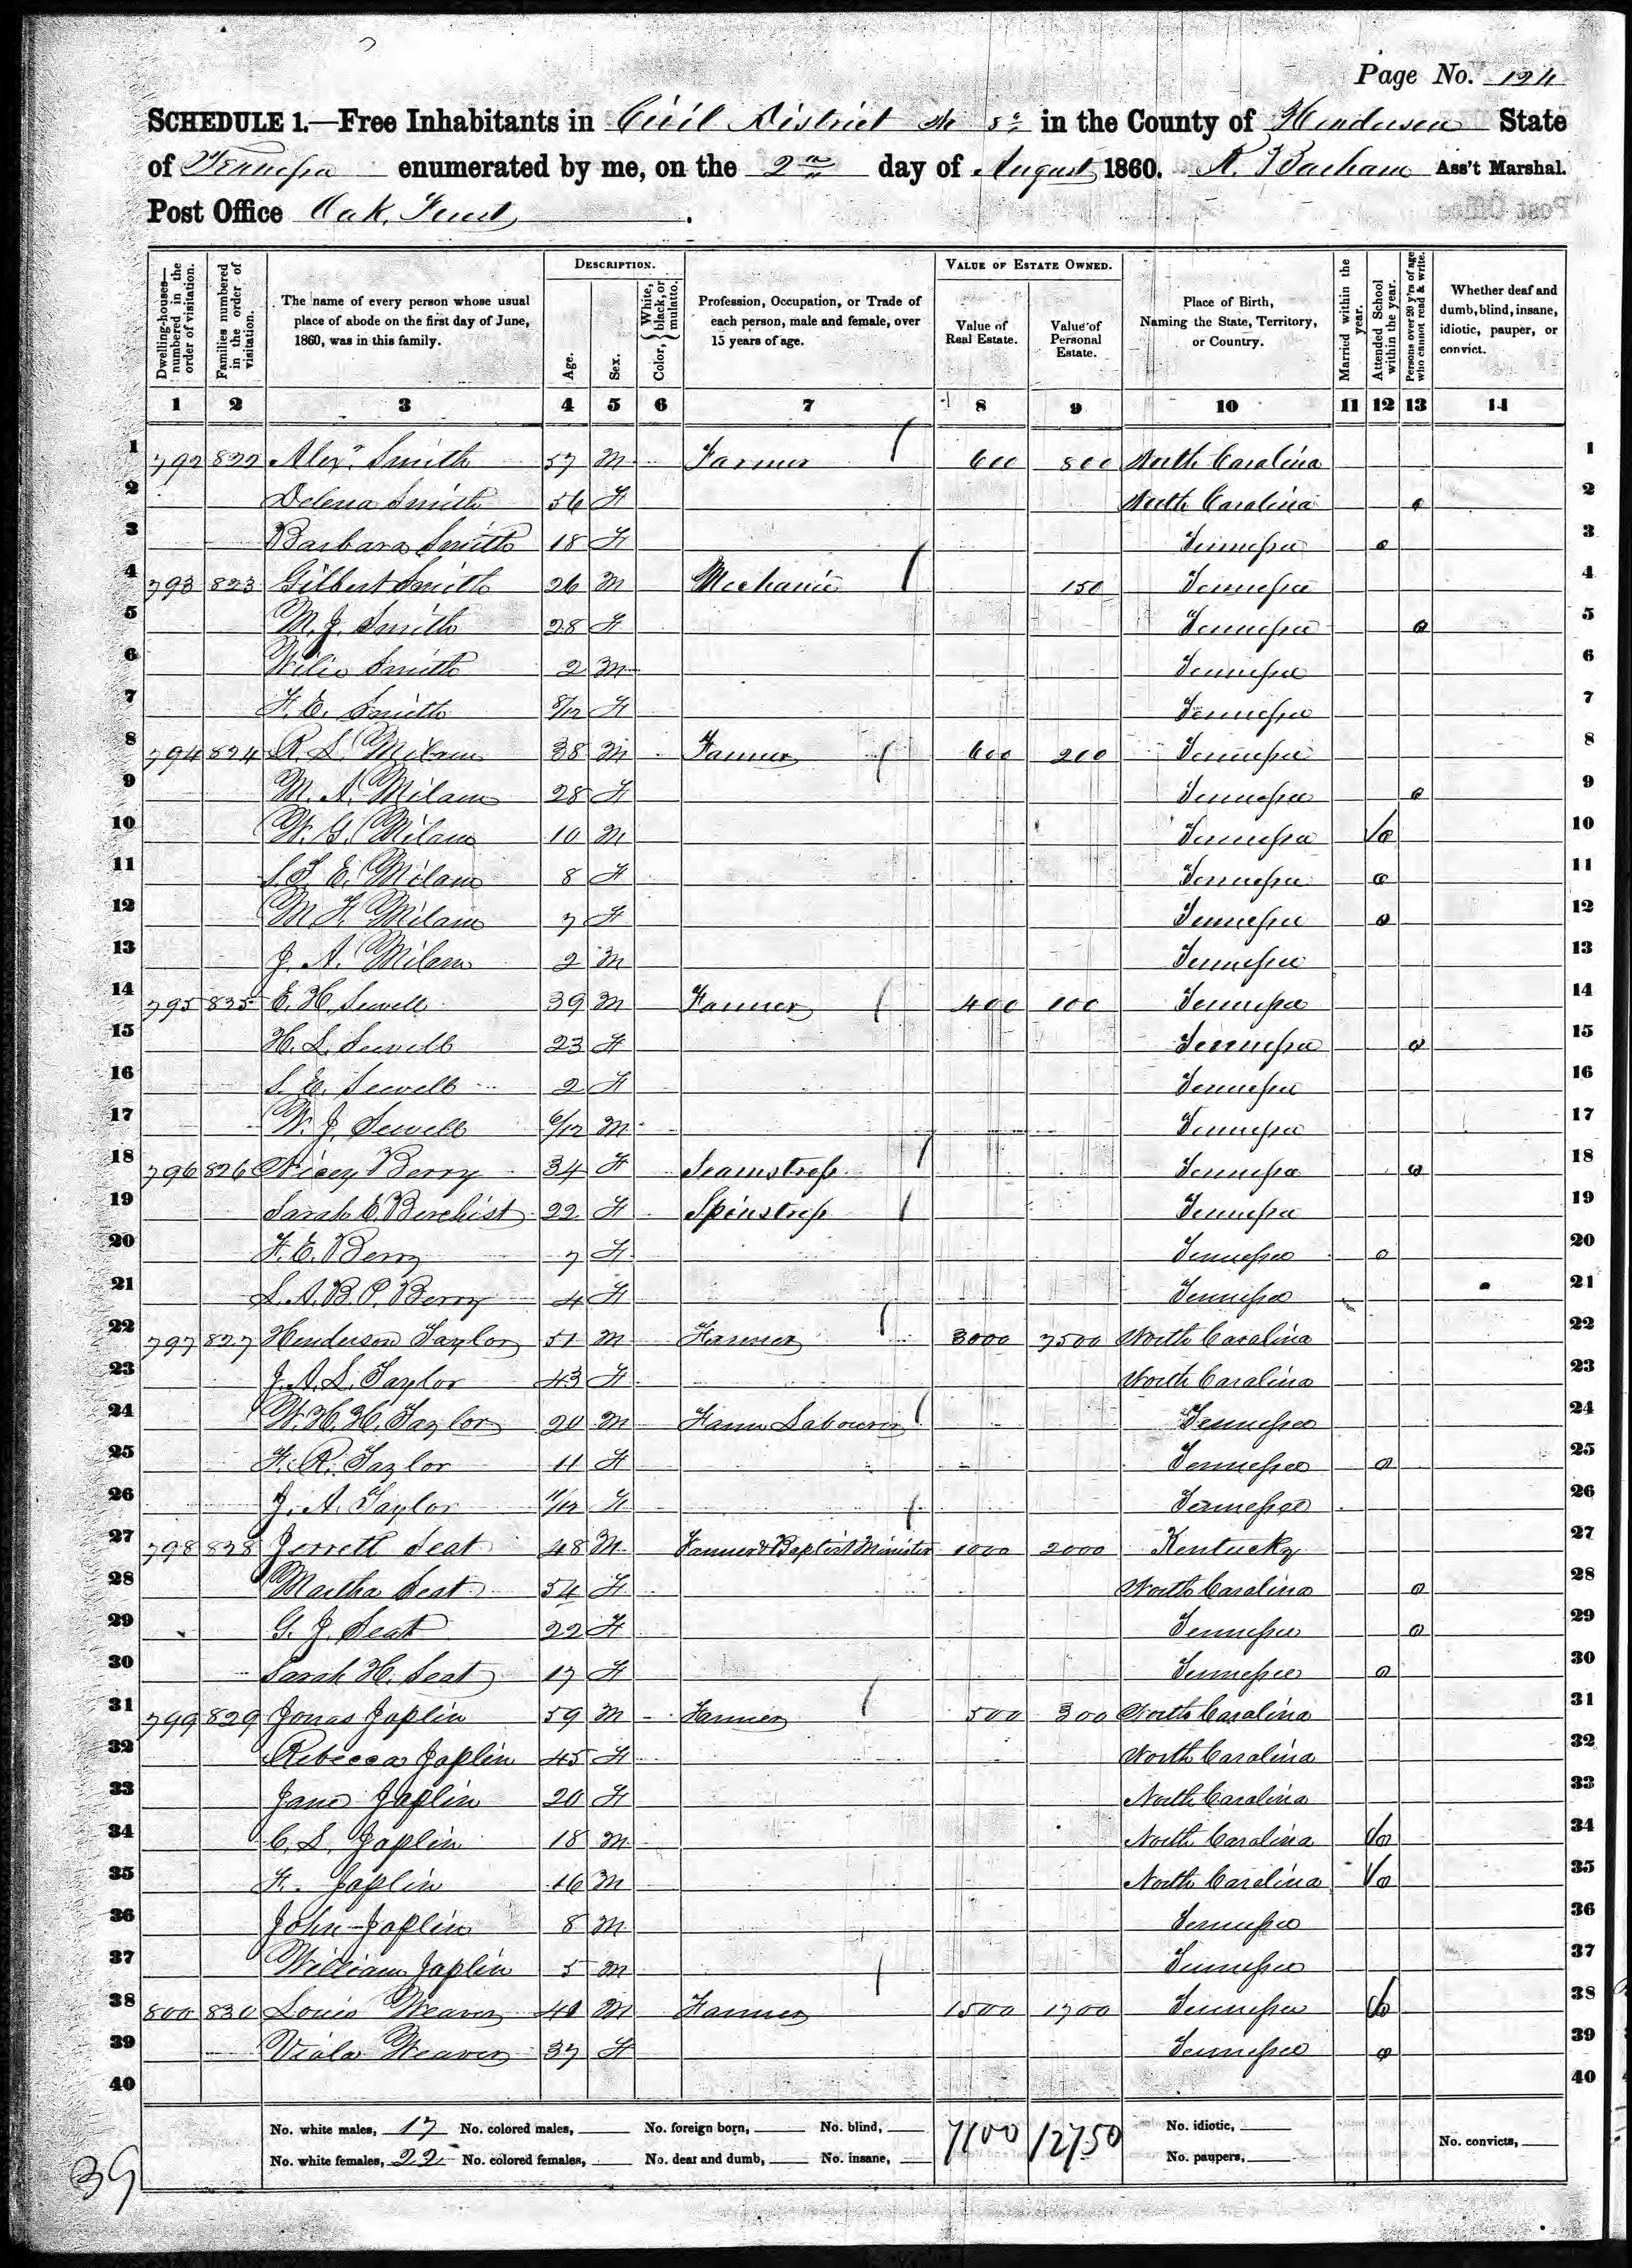 Page No. 124
SCHEDULE 1.—Free Inhabitants in Civil District No 8 in the County of Henderson State
of Tennessee enumerated by me, on the 2nd day of August 1860. Ass't Marshal.
Post Office Oak Forest.
DESCRIPTION. VALUE OF ESTATE OWNED.
Dwelling-houses—numbered in the order of visitation. Families numbered in the order of visitation. The name of every person whose usual place of abode on the first day of June, 1860, was in this family. Age. Sex. Color, { White, black, or mulatto. Profession, Occupation, or Trade of each person, male and female, over 15 years of age. Value of Real Estate. Value of Personal Estate. Place of Birth, Naming the State, Territory, or Country. Married within the year. Attended School within the year. Persons over 20 y'rs of age who cannot read & write. Whether deaf and dumb, blind, insane, idiotic, pauper, or convict.
1 2 3 4 5 6 7 8 9 10 11 12 13 14
1 792 822 Alexr. Smith 57 M Farmer 600 800 North Carolina 1
2 Delena Smith 56 F North Carolina 2
3 Barbara Smith 18 F Tennessee 3
4 793 823 Gilbert Smith 26 M Mechanic 150 Tennessee 4
5 M. J. Smith 28 F Tennessee 5
6 Smith 2 M Tennessee 6
7 F. E. Smith 8/12 F Tennessee 7
8 794 824 R. S. Milam 38 M Farmer 600 200 Tennessee 8
9 M. A. Milam 28 F Tennessee 9
10 W. G. Milam 10 M Tennessee 10
11 S. T. E. Milam 8 F Tennessee 11
12 M. F. Milam 7 F Tennessee 12
13 J. A. Milam 2 M Tennessee 13
14 795 825 E. H. Sewell 39 M Farmer 400 100 Tennessee 14
15 H. L. Sewell 23 F Tennessee 15
16 S. E. Sewell 2 F Tennessee 16
17 W. J. Sewell 6/12 M Tennessee 17
18 796 826 Nicey Berry 34 F Seamstress Tennessee 18
19 Sarah E. 22 F Spinstress Tennessee 19
20 F. E. Berry 7 F Tennessee 20
21 S. A. B. P. Berry 4 F Tennessee 21
22 797 827 Henderson Taylor 51 M Farmer 3000 7500 North Carolina 22
23 J. A. S. Taylor 43 F North Carolina 23
24 W. H. H. Taylor 20 M Farm Labourer Tennessee 24
25 F. R. Taylor 11 F Tennessee 25
26 J. A. Taylor 11/12 F Tennessee 26
27 798 828 Jerrett Seat 48 M Farmer & Baptist Minister 1000 2000 Kentucky 27
28 Martha Seat 54 F North Carolina 28
29 G. J. Seat 22 F Tennessee 29
30 Sarah H. Seat 17 F Tennessee 30
31 799 829 Jonas Joplin 59 M Farmer 500 300 North Carolina 31
32 Rebecca Joplin 45 F North Carolina 32
33 Jane Joplin 20 F North Carolina 33
34 C. S. Joplin 18 M North Carolina 34
35 F. Joplin 16 M North Carolina 35
36 John Joplin 8 M Tennessee 36
37 William Joplin 5 M Tennessee 37
38 800 830 Louis Weaver 40 M Farmer 1500 1700 Tennessee 38
39 Viola Weaver 37 F Tennessee 39
40 40
No. white males, 17 No. colored males, No. foreign born, No. blind, 7600 12750 No. idiotic,
No. white females, 22 No. colored females, No. deaf and dumb, No. insane, No. paupers, No. convicts,
39